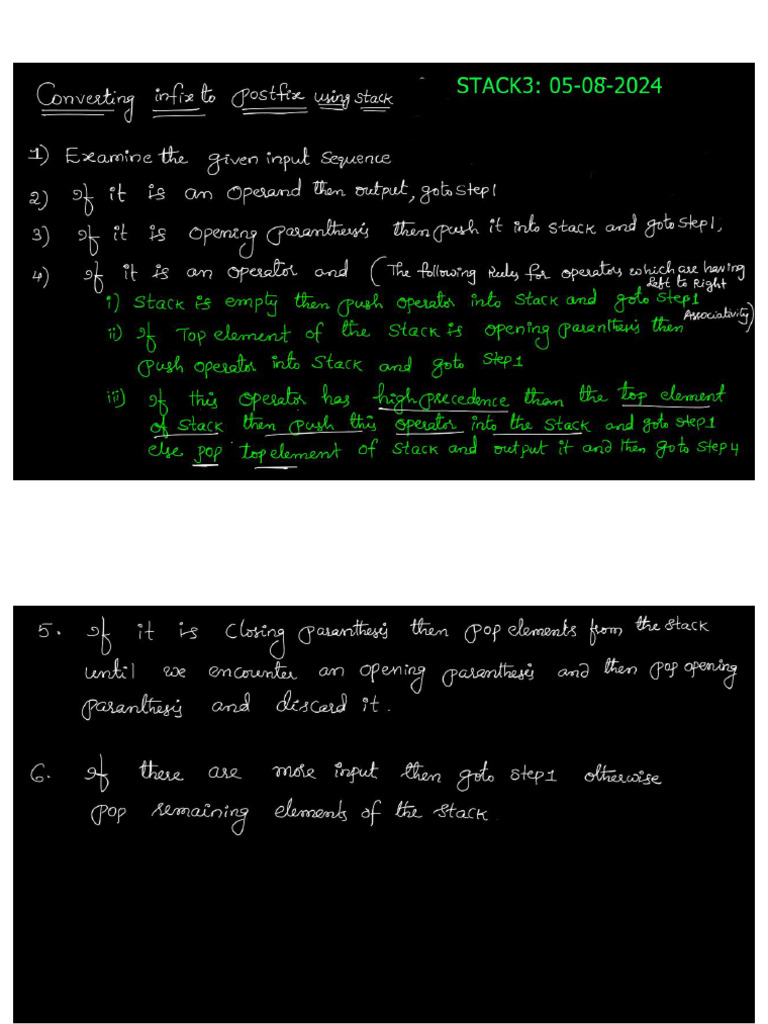 Converting infix to postfix using stack
STACK3: 05-08-2024
1) Examine the given input sequence
2) If it is an operand then output, goto step1
3) If it is opening paranthesis then push it into stack and goto step1,
4) If it is an operator and (The following Rules for operators which are having
Left to Right
Associativity)
i) Stack is empty then push operator into stack and goto step1
ii) If Top element of the stack is opening paranthesis then
push operator into stack and goto step1
iii) If this operator has high precedence than the top element
of stack then push this operator into the stack and goto step1
else pop top element of stack and output it and then goto step4
5. If it is closing paranthesis then pop elements from the stack
until we encounter an opening paranthesis and then pop opening
paranthesis and discard it.
6. If there are more input then goto step1 otherwise
pop remaining elements of the stack.